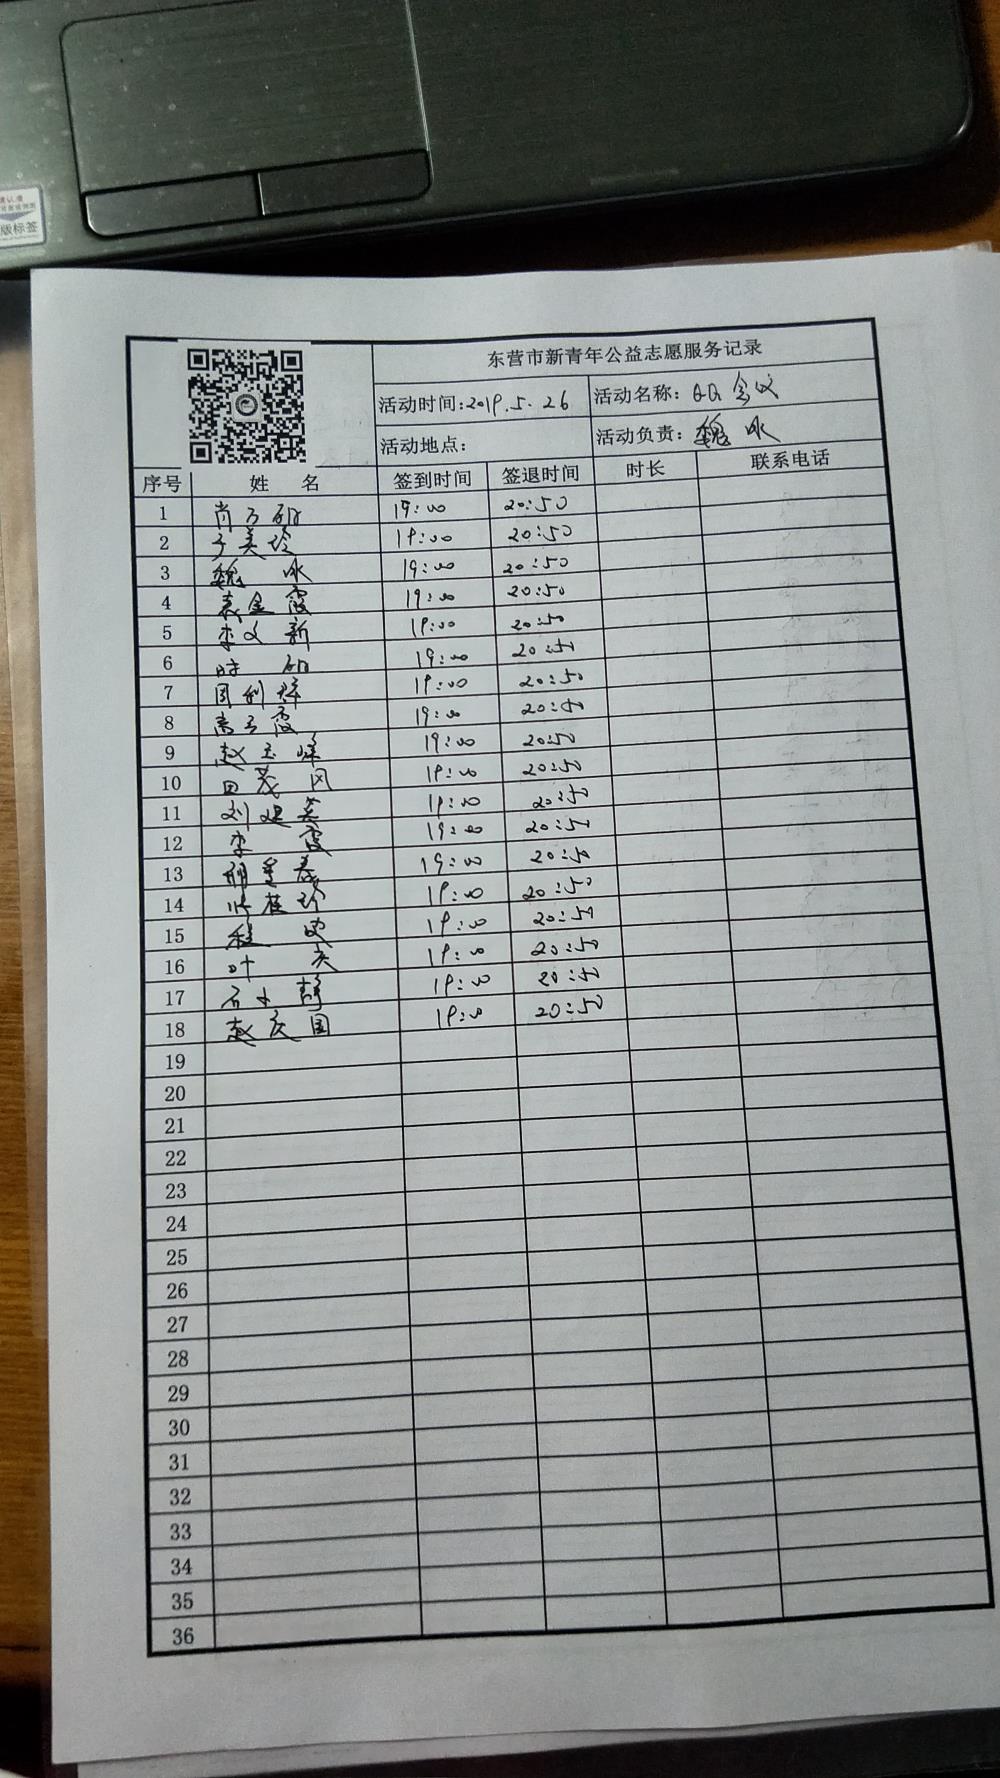 版标签
东营市新青年公益志愿服务记录
活动时间:2019.5.26 活动名称: QQ会议
活动地点: 活动负责: 魏冰
序号 姓名 签到时间 签退时间 时长 联系电话
1 19:00 20:50
2 于美玲 19:00 20:50
3 魏冰 19:00 20:50
4 袁金霞 19:00 20:50
5 李文新 19:00 20:50
6 19:00 20:50
7 19:00 20:50
8 19:00 20:50
9 赵玉峰 19:00 20:50
10 田茂风 19:00 20:50
11 刘建英 19:00 20:50
12 李霞 19:00 20:50
13 19:00 20:50
14 张桂珍 19:00 20:50
15 19:00 20:50
16 19:00 20:50
17 石小静 19:00 20:50
18 赵庆国 19:00 20:50
19
20
21
22
23
24
25
26
27
28
29
30
31
32
33
34
35
36